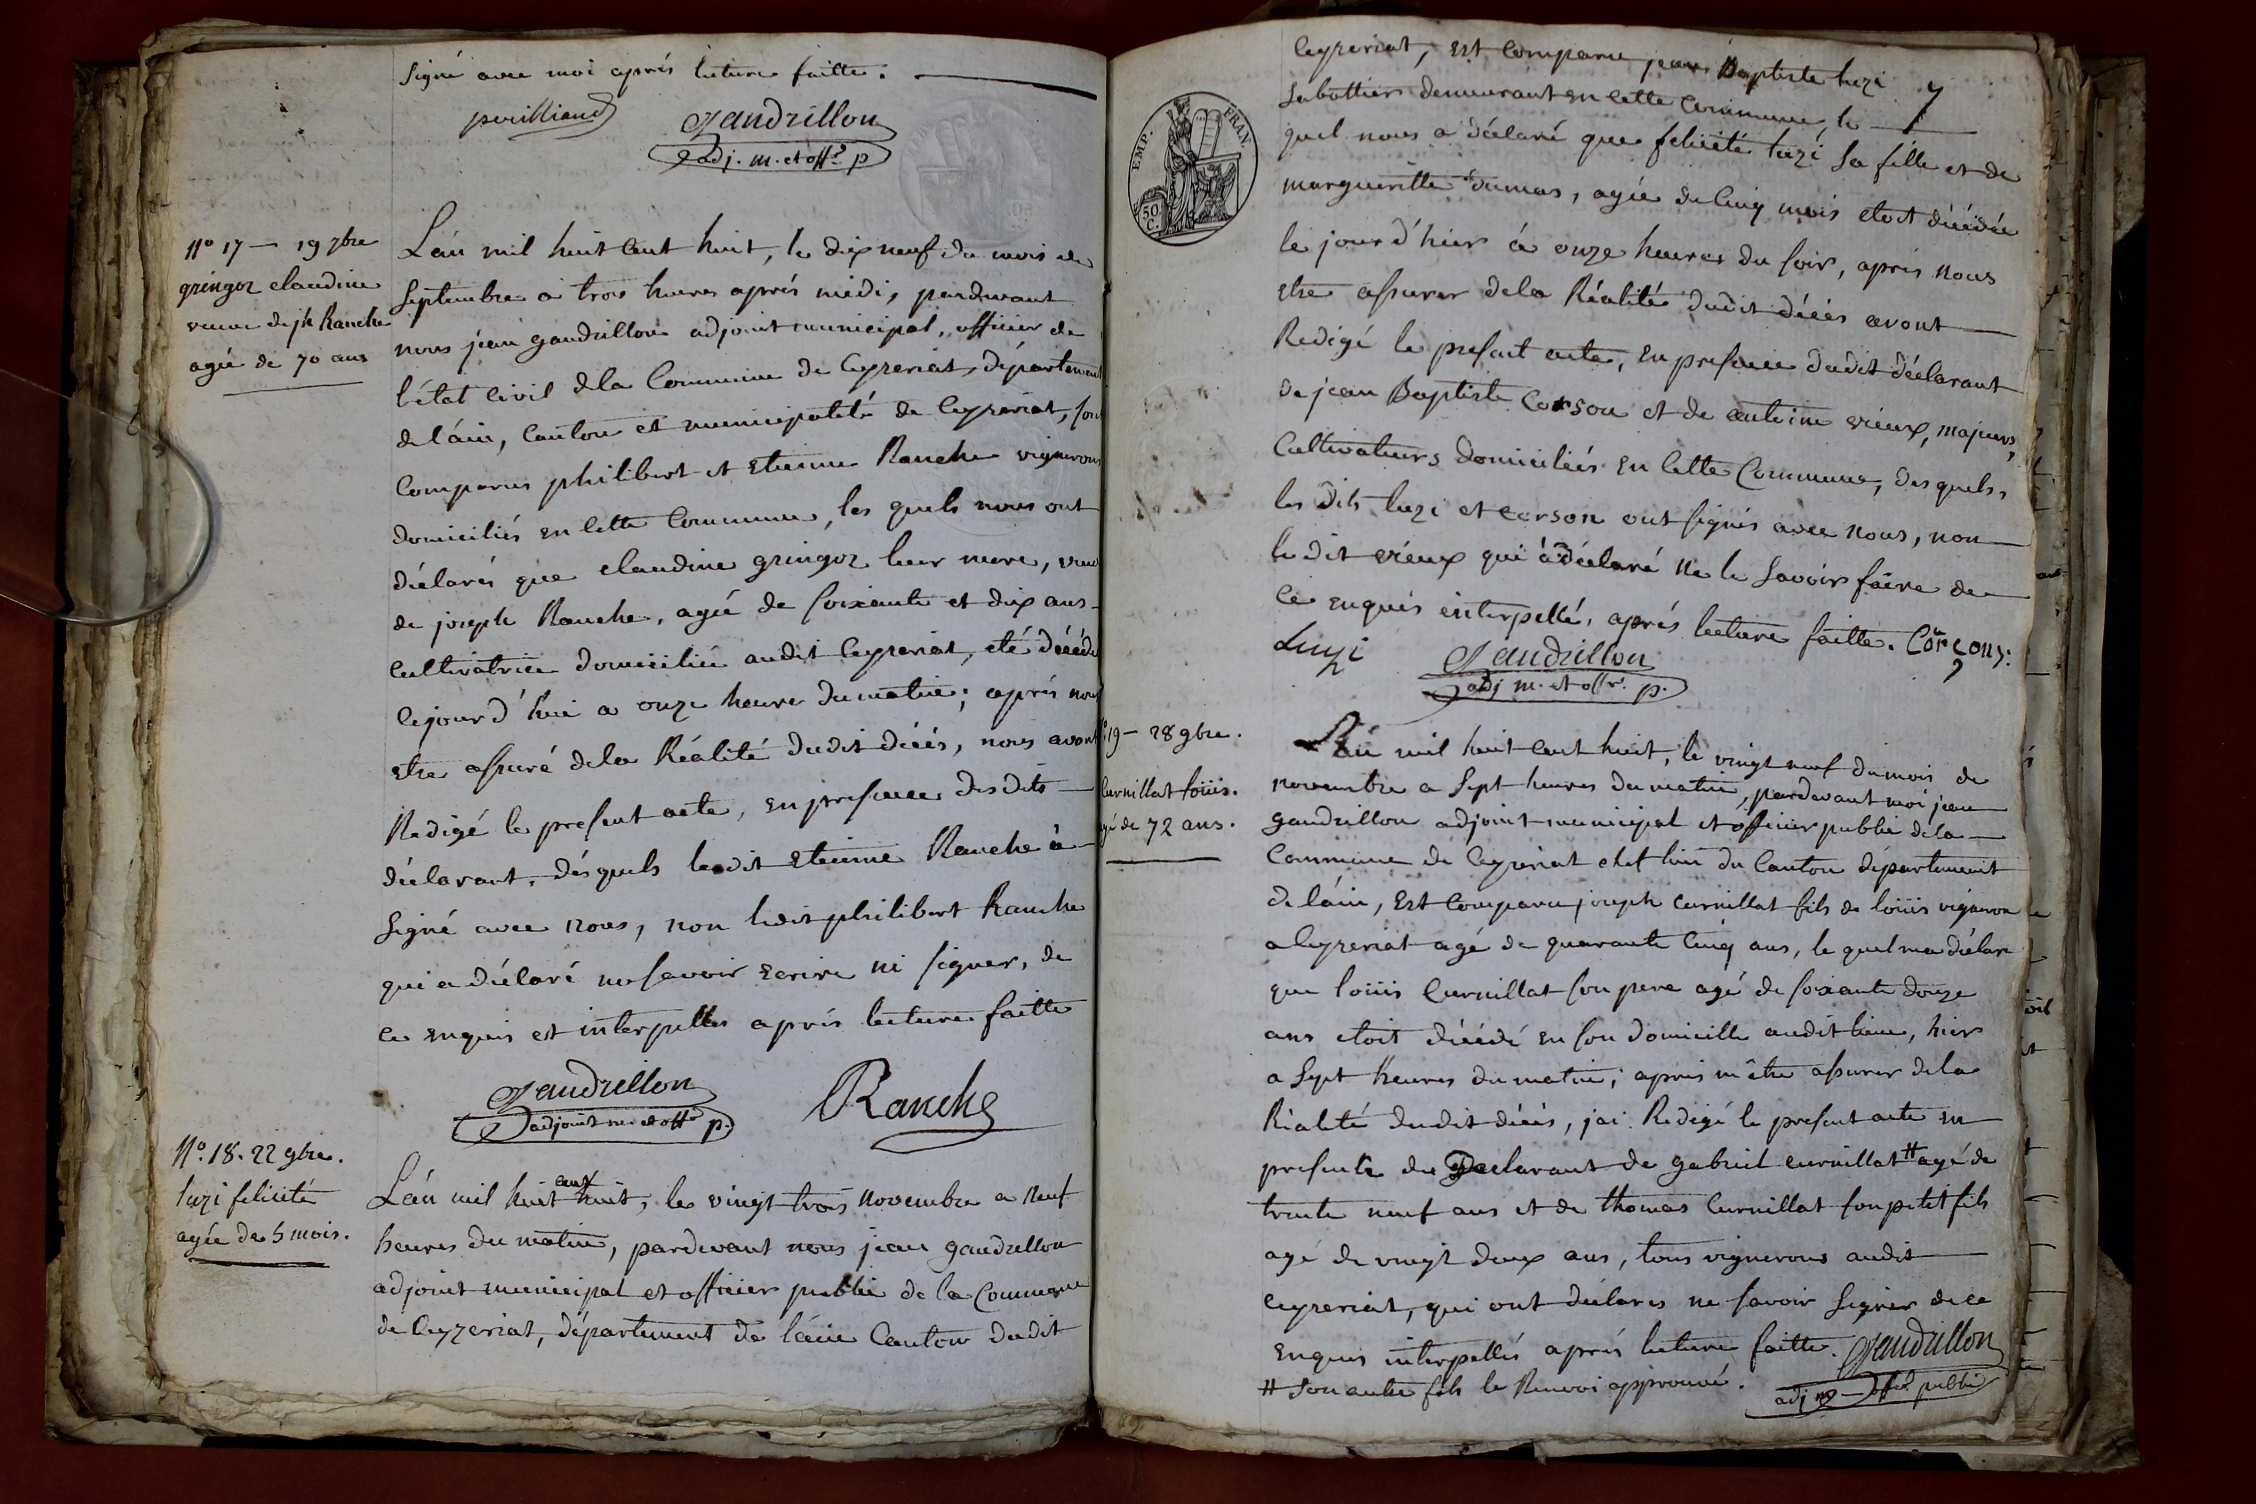 signé avec moi aprés lecture faitte.
perilliand
Gaudrillon
adj. m. et offr p
No 17 — 19 7bre
gringoz claudine
veuve de jh Ranche
agée de 70 ans
L'án mil huit cent huit, le dix neuf du mois de
Septembre a trois heures aprés midi, pardevant
nous jean gaudrillon adjoint municipal, officier de
l'état civil dela Commune de Ceyzeriat, département
de láin, Canton et municipalité de Ceyzeriat, sont
Comparus philibert et Etienne Ranche vignerons
domiciliés en cette Commune, les quels nous ont
déclarés que claudine gringoz leur mere, veuve
de joseph Ranche, agée de soixante et dix ans
Cultivatrice domiciliée audit Ceyzeriat, eté décédée
cejourd'hui a onze heures du matin; aprés nous
etre assuré dela Réalité dudit décés, nous avons
Redigé le present acte, en presence desdits
déclarant, désquels ledit Etienne Ranche à
signé avec nous, non ledit philibert Ranche
qui a déclaré ne savoir ecrire ni signer, de
ce enquis et interpellés aprés lecture faitte
Gaudrillon
adjoint m. et offr p.
Ranche
No. 18. 22 9bre.
luzi felicité
agée de 5 mois.
L'án mil huit cent huit, le vingt trois novembre a neuf
heures du matin, pardevant nous jean gaudrillon
adjoint municipal et officier public de la Commune
de Ceyzeriat, département de láin Canton dudit
Ceyzeriat, est Comparu jean Baptiste luzi
7
Sabottier demeurant en cette Commune, le
quel nous a déclaré que felicité luzi sa fille et de
margueritte dumas, agée de Cinq mois etoit décédée
le jour d'hier à onze heures du soir, aprés nous
etre assurer dela Réalité dudit décés avont
Redigé le present acte, en presence dudit déclarant
de jean Baptiste Corson et de antoine vieux, majeurs,
Cultivateurs domiciliés en cette Commune, desquels,
les dits luzi et corson ont signés avec nous, non
le dit vieux qui à déclaré ne le savoir faire de
ce enquis interpellé, aprés lecture faitte. Corçon:
Luzi
Gaudrillon
adj m. et offr. p.
EMP. FRAN.
50 C.
No 19 — 28 9bre.
Curnillat loüis.
agé de 72 ans.
L'án mil huit cent huit, le vingt neuf du mois de
novembre a sept heures du matin, pardevant moi jean
gaudrillon adjoint municipal et officier public déla
Commune de Ceyzeriat chef lieu du Canton département
de láin, est Comparu joseph curnillat fils de loüis vigneron
a Ceyzeriat agé de quarante cinq ans, le quel ma déclaré
que loüis Curnillat son pere agé de soixante douze
ans etoit décédé en son domicille audit lieu, hier
a sept heures du matin; aprés m'être assurer dela
Réalité dudit décés, jai Redigé le present acte en
presence du Declarant de gabriel curnillat # agé de
trente neuf ans et de thomas Curnillat son petit fils
agé de vingt deux ans, tous vignerons audit
Ceyzeriat, qui ont déclarés ne savoir signer dece
enquis interpellés aprés lecture faitte. Gaudrillon
# son autre fils le Renvoi approuvé.
adj m offr public